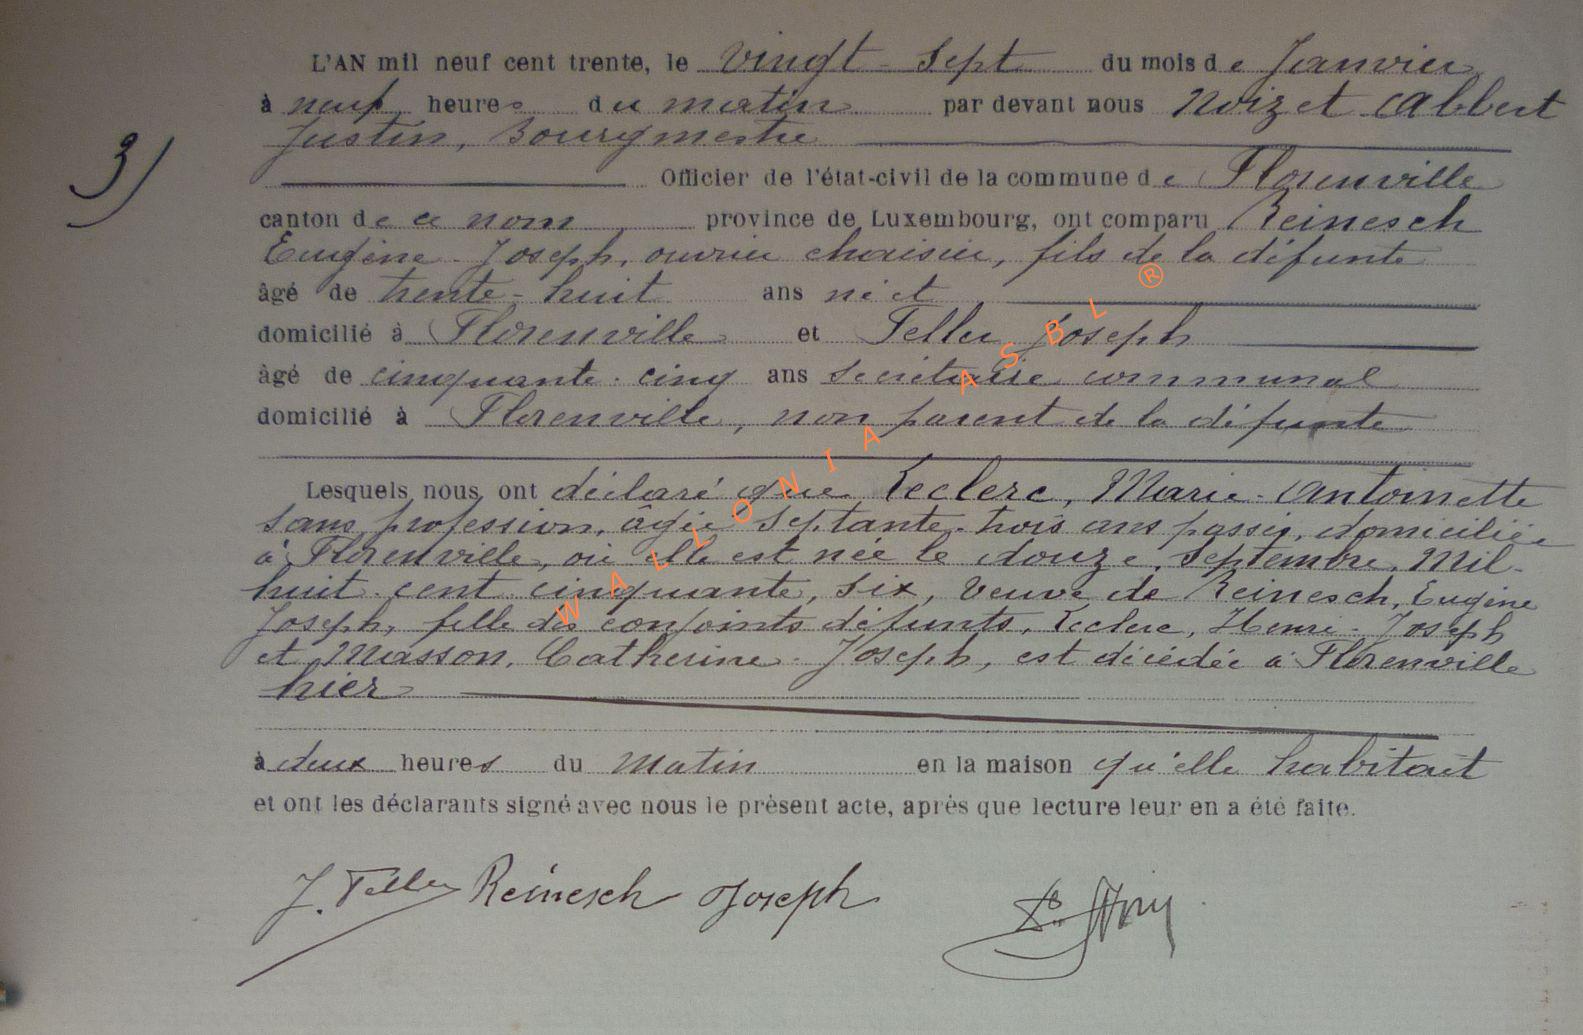 L'AN mil neuf cent trente, le vingt-sept du mois de Janvier
à neuf heures du matin par devant nous Noizet Albert
Justin, Bourgmestre
3)
Officier de l'état-civil de la commune de Florenville
canton de ce nom province de Luxembourg, ont comparu Reinesch
Eugène-Joseph, ouvrier chaisier, fils de la défunte
âgé de trente-huit ans né et
domicilié à Florenville et Feller Joseph
âgé de cinquante-cinq ans secrétaire communal
domicilié à Florenville, non parent de la défunte
Lesquels nous ont déclaré que Leclerc, Marie-Antoinette
sans profession, âgée septante-trois ans passés, domiciliée
à Florenville, où elle est née le douze, Septembre, Mil-
huit cent cinquante, six, Veuve de Reinesch, Eugène
Joseph, fille des conjoints défunts, Leclerc, Henri-Joseph
et Masson, Catherine-Joseph, est décédée à Florenville
hier
à deux heures du Matin en la maison qu'elle habitait
et ont les déclarants signé avec nous le présent acte, après que lecture leur en a été faite.
J. Feller Reinesch Joseph
WALLONIA ASBL ®